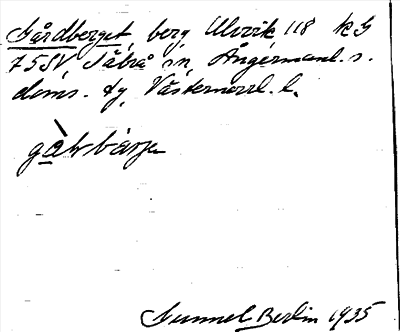 Gårdberget, berg Ulvvik 118 kG
75SV Säbrå sn, Ångermanl. s.
doms. dy, Västernorrl. l.
Gunnel Berlin 1935